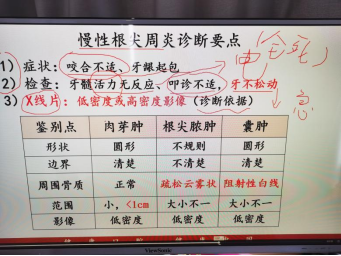 慢性根尖周炎诊断要点
1) 症状：咬合不适、牙龈起包
2) 检查：牙髓活力无反应、叩诊不适，牙不松动
3) X线片：低密度或高密度影像（诊断依据）
鉴别点 肉芽肿 根尖脓肿 囊肿
形状 圆形 不规则 圆形
边界 清楚 不清楚 清楚
周围骨质 正常 疏松云雾状 阻射性白线
范围 小，<1cm 大小不一 大小不一
影像 低密度 低密度 低密度
ViewSonic